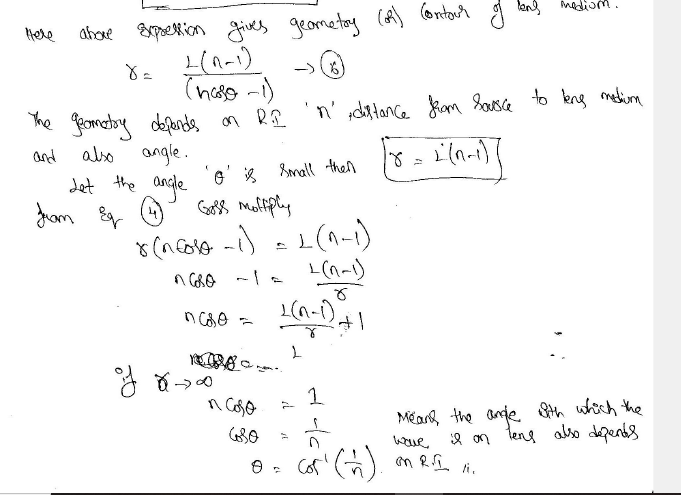 Here above expression gives geometry (or) contour of lens medium.
r = L(n-1) / (ncosθ -1) → ⑥
The geometry depends on R.I 'n', distance from source to lens medium
and also angle.
Let the angle 'θ' is small then r = L(n-1)
from Eq ④ Cross multiply
r(ncosθ -1) = L(n-1)
ncosθ -1 = L(n-1) / r
ncosθ = L(n-1) / r +1
if r→∞
ncosθ = 1
cosθ = 1/n
θ = cos⁻¹(1/n).
Means the angle with which the
wave is on lens also depends
on R.I